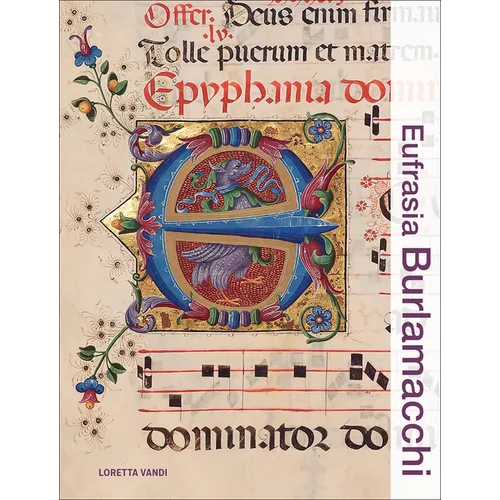 Offer. Deus enim fir
.lv.
Tolle puerum et mat
Epyphania do
dominator do
Eufrasia Burlamacchi
LORETTA VANDI